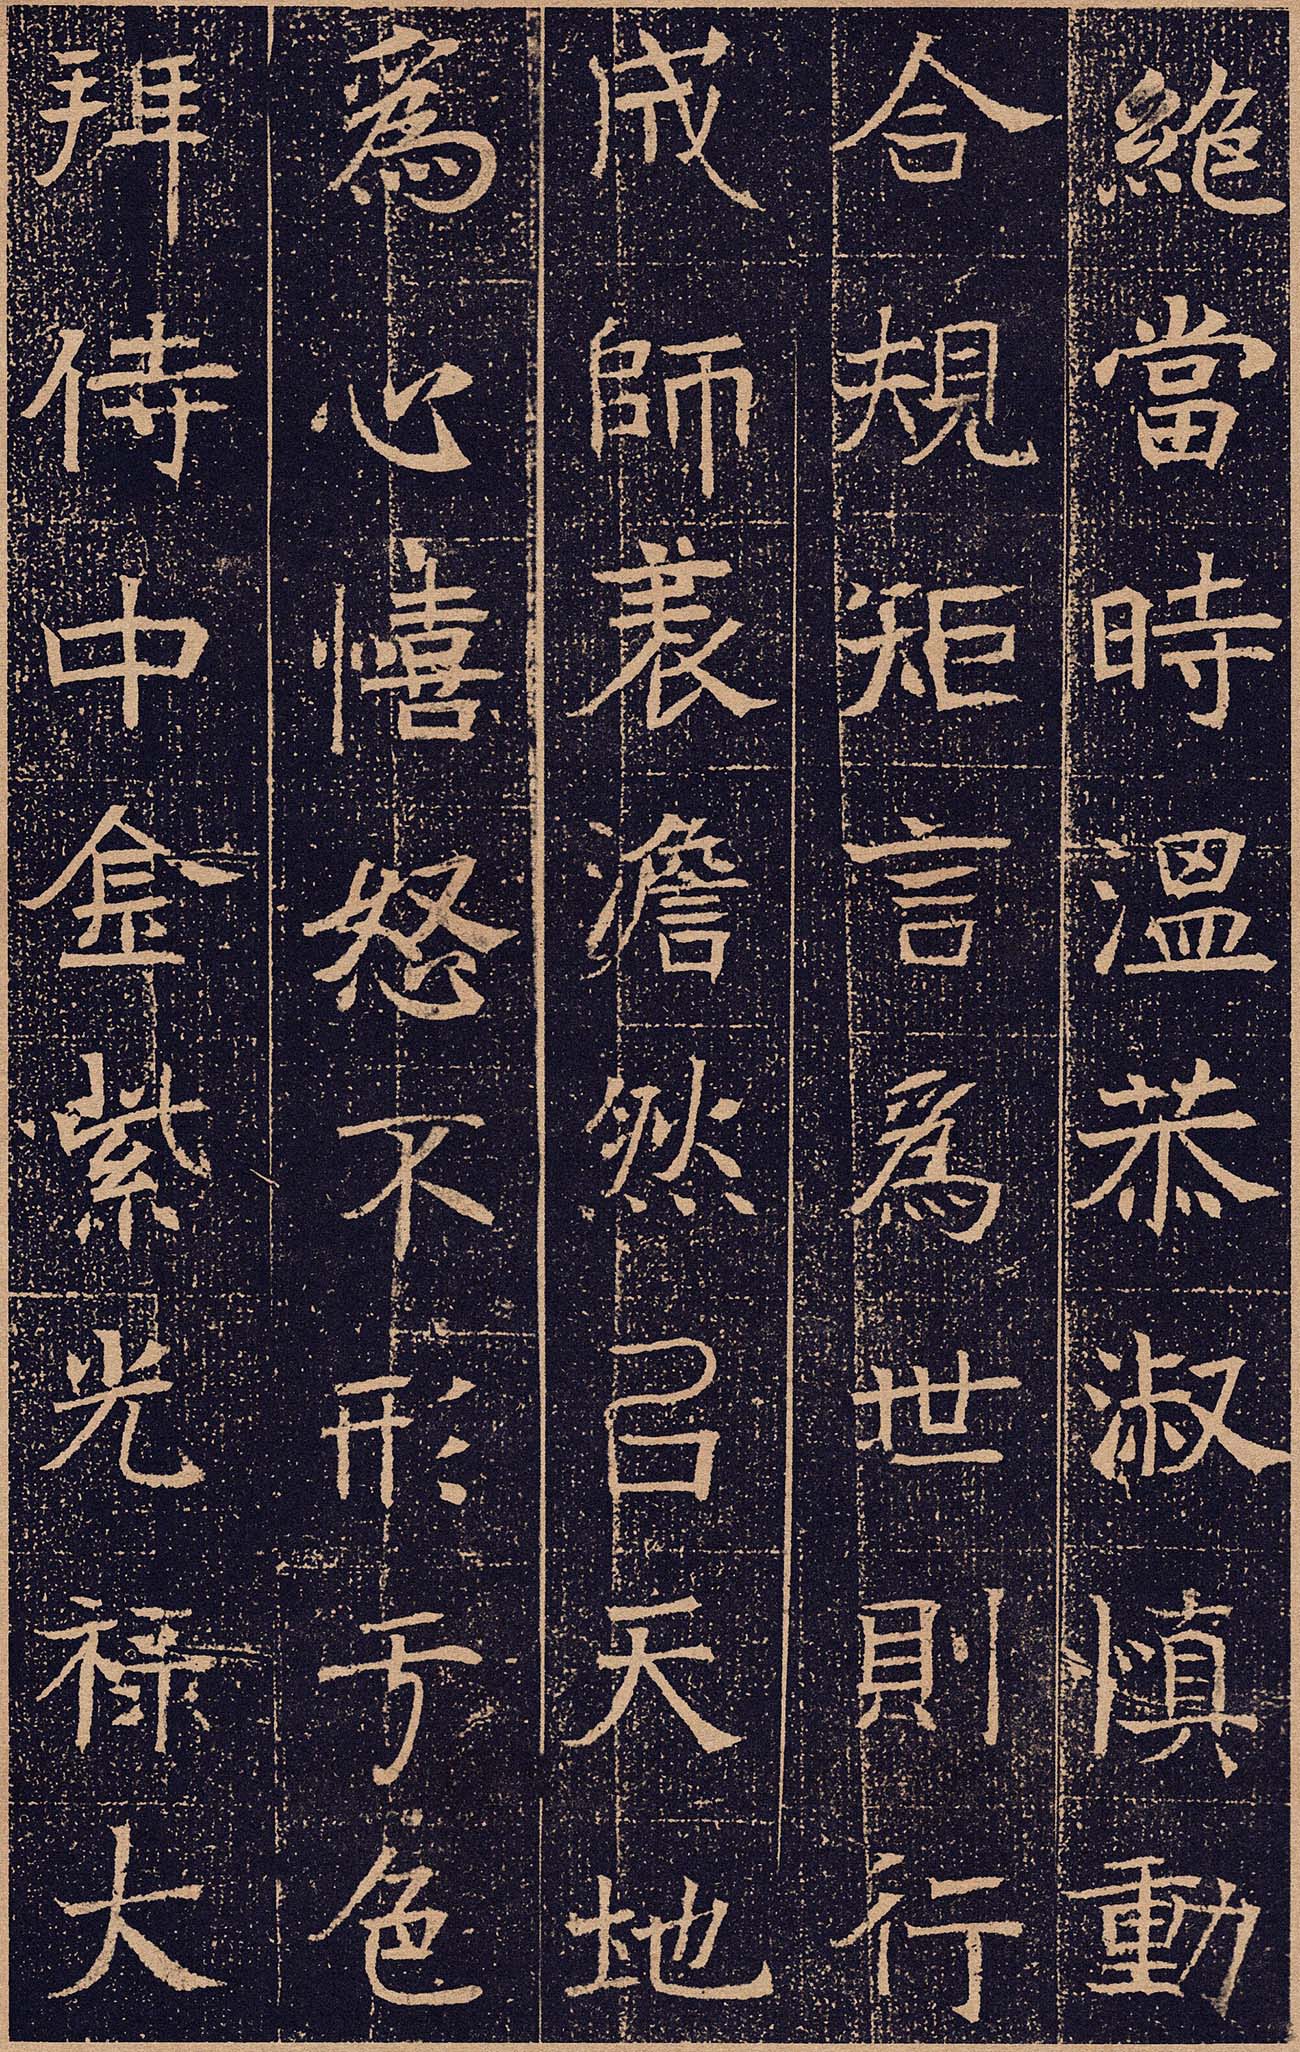 絶當時溫恭淑慎動
合規矩言爲世則行
成師表澹然㠯天地
爲心憘怒不形于色
拜侍中金紫光祿大